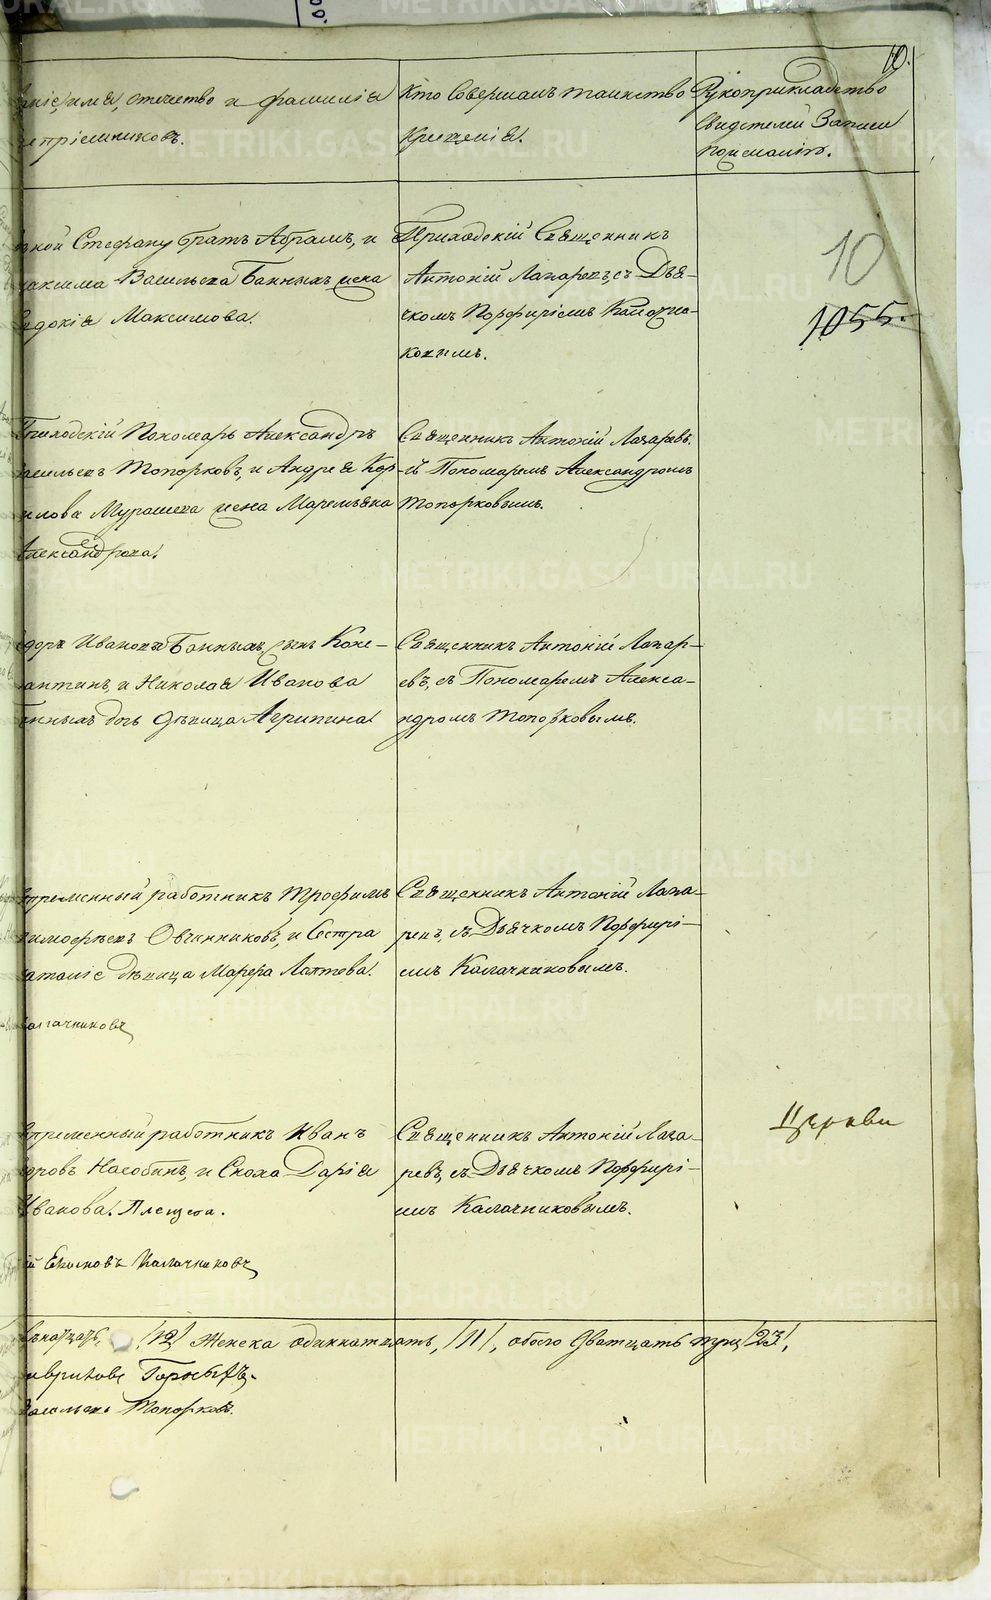 10.
имя, отечество и фамилія
воспріемниковъ.
Кто Совершалъ таинство
Крещенія.
Рукоприкладство
Свидѣтелей Записи
по желанію.
Стефану братъ Абрамъ, и
Максима Васильева Банныхъ жена
Евдокія Максимова.
Приходскій Священникъ
Антоній Лазаревъ, съ Дья-
чкомъ Порфиріемъ Калачни-
ковымъ.
10
1055.
Приходскій Пономарь Александръ
Васильевъ Топорковъ, и Андрея Кор-
нилова Мурашева жена Маремьяна
Александрова.
Священникъ Антоній Лазаревъ.
съ Пономаремъ Александромъ
Топорковымъ.
Ивановъ Банныхъ, сынъ Конс-
тантинъ, и Николая Иванова
Банныхъ дочь дѣвица Агрипина.
Священникъ Антоній Лазар-
евъ, съ Пономаремъ Алекса-
ндромъ Топорковымъ.
Непременный работникъ Трофимъ
Тимофѣевъ Овчинниковъ, и Сестра
Наталіе дѣвица Марфа Лаптева.
Калачниковъ
Священникъ Антоній Лаза-
ревъ, съ Дьячкомъ Порфирі-
емъ Калачниковымъ.
Непременный работникъ Иванъ
Насобинъ, и Сноха Дарія
Иванова.
Калачниковъ
Священникъ Антоній Лаза-
ревъ, съ Дьячкомъ Порфирі-
емъ Калачниковымъ.
Церкви
/12/ Женска одиннатцать, /11/, обоего Дватцать три /23/,
Топорковъ.
METRIKI.GASO-URAL.RU